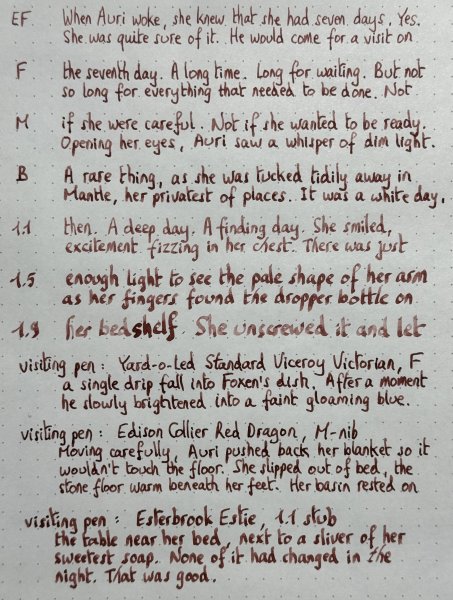 EF When Auri woke, she knew that she had seven days. Yes.
She was quite sure of it. He would come for a visit on
F the seventh day. A long time. Long for waiting. But not
so long for everything that needed to be done. Not
M if she were careful. Not if she wanted to be ready.
Opening her eyes, Auri saw a whisper of dim light.
B A rare thing, as she was tucked tidily away in
Mantle, her privatest of places. It was a white day,
1.1 then. A deep day. A finding day. She smiled,
excitement fizzing in her chest. There was just
1.5 enough light to see the pale shape of her arm
as her fingers found the dropper bottle on
1.9 her bedshelf. She unscrewed it and let
visiting pen: Yard-o-Led Standard Viceroy Victorian, F
a single drip fall into Foxen's dish. After a moment
he slowly brightened into a faint gloaming blue.
visiting pen: Edison Collier Red Dragon, M-nib
Moving carefully, Auri pushed back her blanket so it
wouldn't touch the floor. She slipped out of bed, the
stone floor warm beneath her feet. Her basin rested on
visiting pen: Esterbrook Estie, 1.1 stub
the table near her bed, next to a sliver of her
sweetest soap. None of it had changed in the
night. That was good.